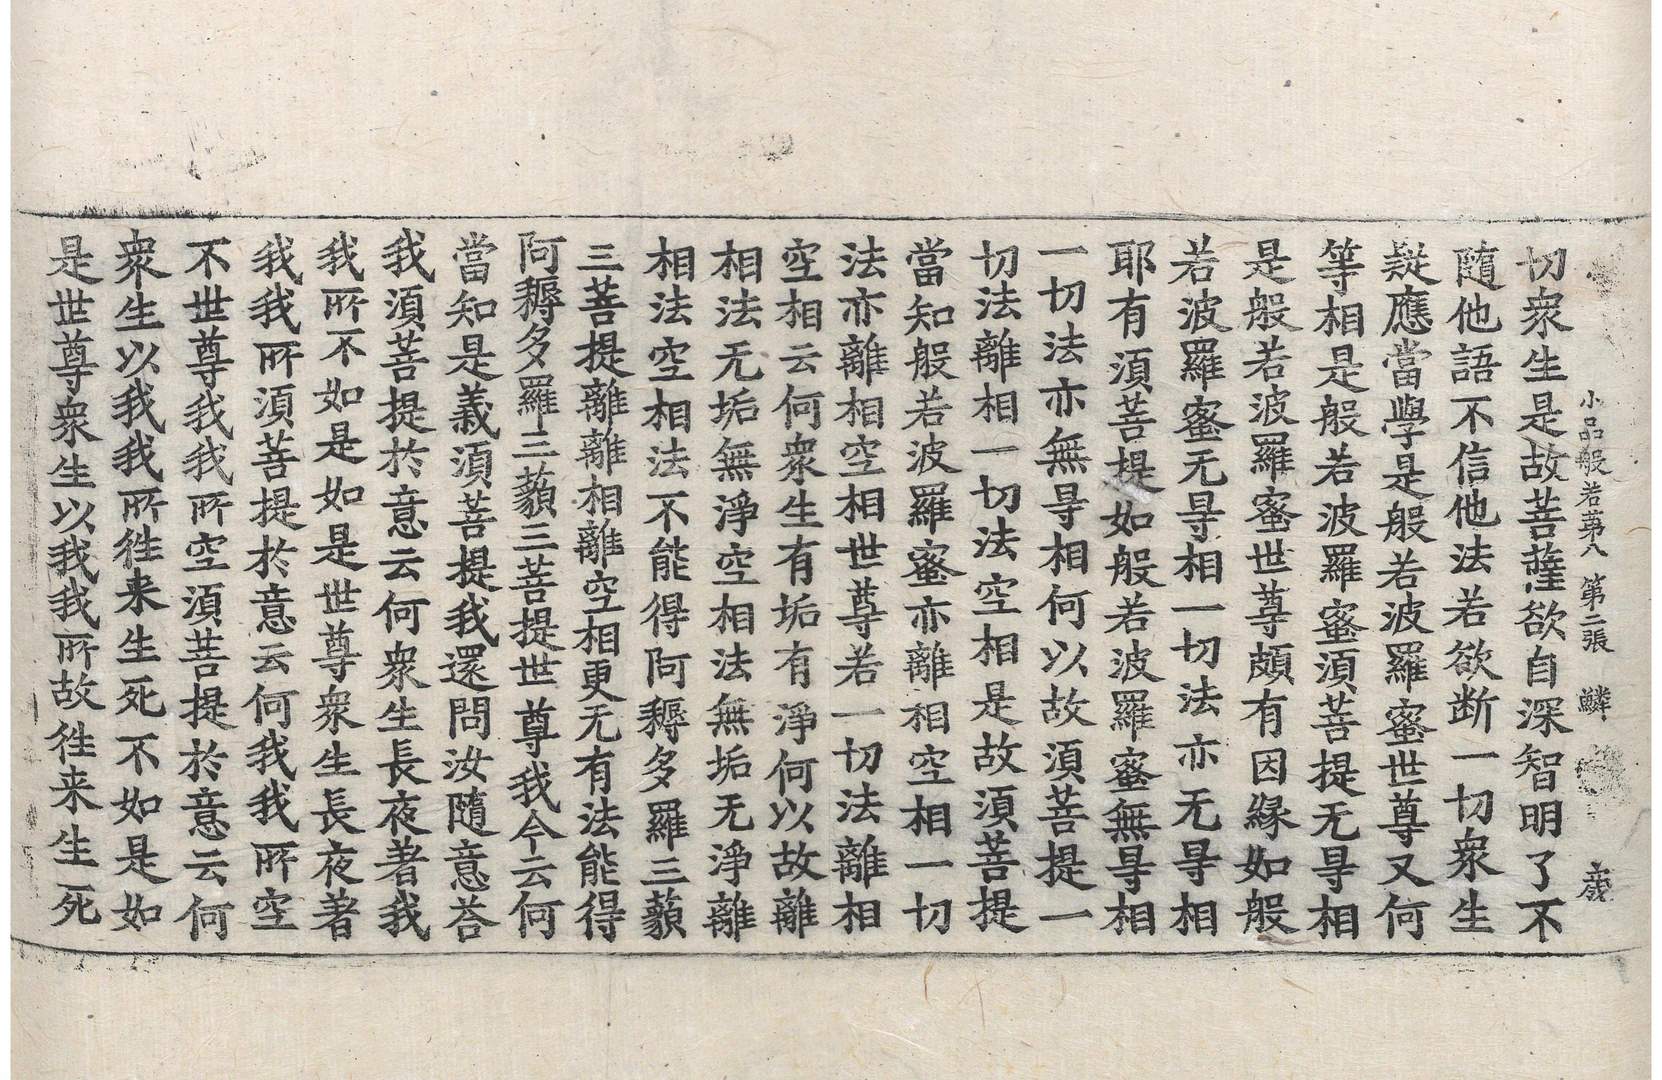 小品般若第八 第二張 鱗
切衆生是故菩薩欲自深智明了不
隨他語不信他法若欲断一切衆生
疑應當學是般若波羅蜜世尊又何
等相是般若波羅蜜湏菩提无㝵相
是般若波羅蜜世尊頗有因緣如般
若波羅蜜无㝵相一切法亦无㝵相
耶有湏菩提如般若波羅蜜無㝵相
一切法亦無㝵相何以故湏菩提一
切法離相一切法空相是故湏菩提
當知般若波羅蜜亦離相空相一切
法亦離相空相世尊若一切法離相
空相云何衆生有垢有淨何以故離
相法无垢無淨空相法無垢无淨離
相法空相法不能得阿耨多羅三藐
三菩提離離相離空相更无有法能得
阿耨多羅三藐三菩提世尊我今云何
當知是義湏菩提我還問汝隨意荅
我湏菩提於意云何衆生長夜著我
我所不如是如是世尊衆生長夜著
我我所湏菩提於意云何我我所空
不世尊我我所空湏菩提於意云何
衆生以我我所徃来生死不如是如
是世尊衆生以我我所故徃来生死